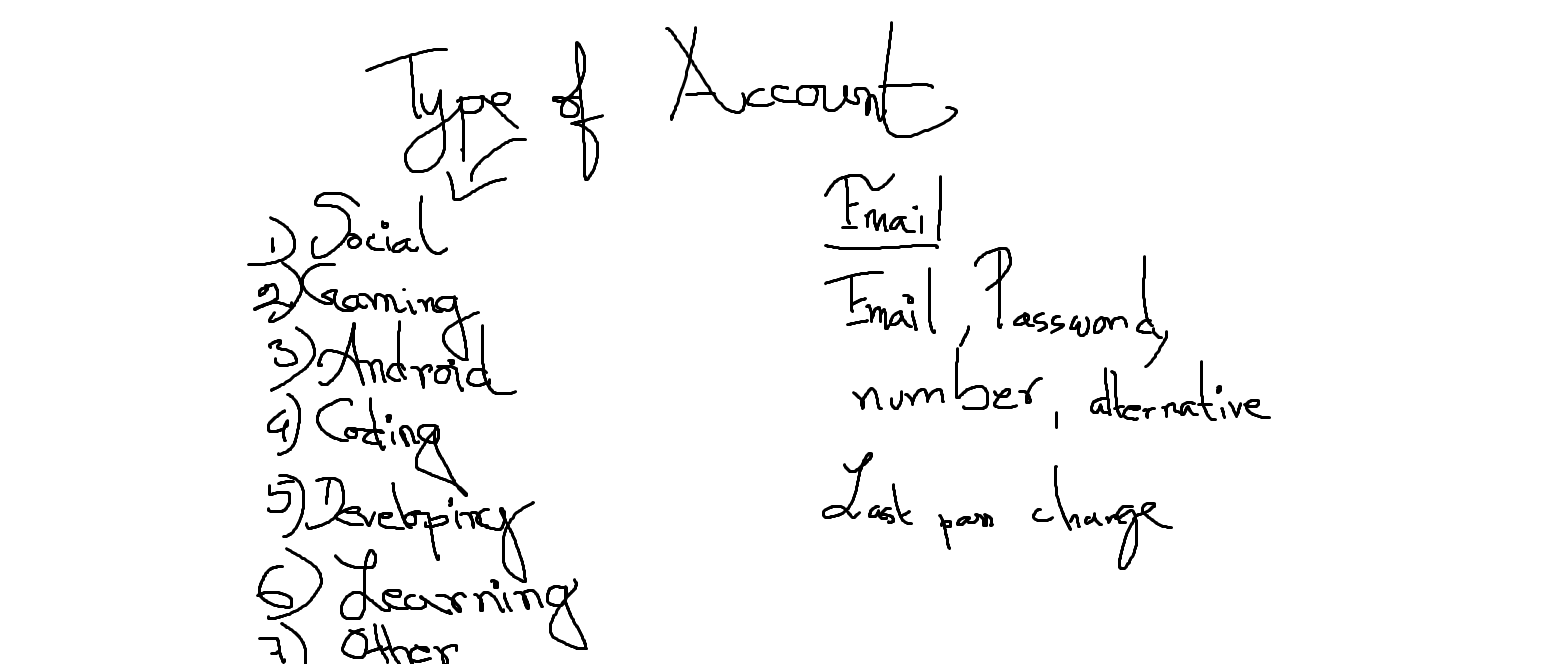 Type of Account
1) Social
2) Gaming
3) Android
4) Coding
5) Developing
6) Learning
7) Other
Email
Email, Password,
number, alternative
Last pass change